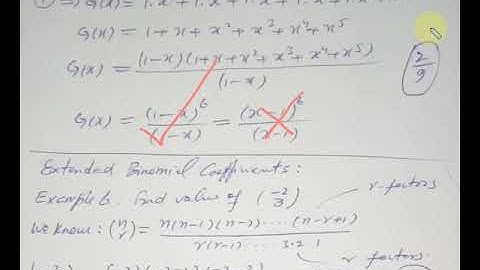 ① ⇒ G(x) = 1.x + 1.x + 1.x + 1.x
G(x) = 1 + x + x² + x³ + x⁴ + x⁵
G(x) = (1-x)(1+x+x²+x³+x⁴+x⁵) / (1-x)
2/9
G(x) = (1-x)⁶ / (1-x) = (x-1)⁶ / (x-1)
Extended Binomial Coefficients:
Example 6. Find value of (-2 3)
r-factors
We know: (n r) = n(n-1)(n-2)....(n-r+1) / r(r-1)... 3.2.1
r factors